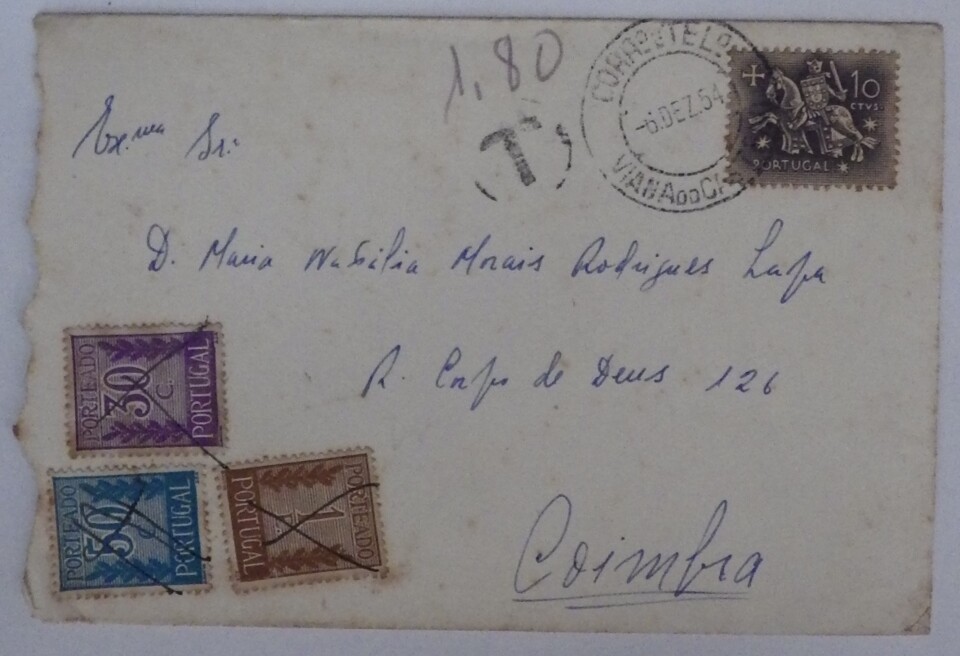 1,80
T
CORRos E TELos
-6.DEZ.54
VIANA DO CAS
10
CTVS.
PORTUGAL
Ex.ma Sr.ª
D. Maria Natália Morais Rodrigues Lapa
R. Corpo de Deus 126
Coimbra
PORTEADO
30
C.
PORTUGAL
PORTEADO
50
C.
PORTUGAL
PORTEADO
1
PORTUGAL